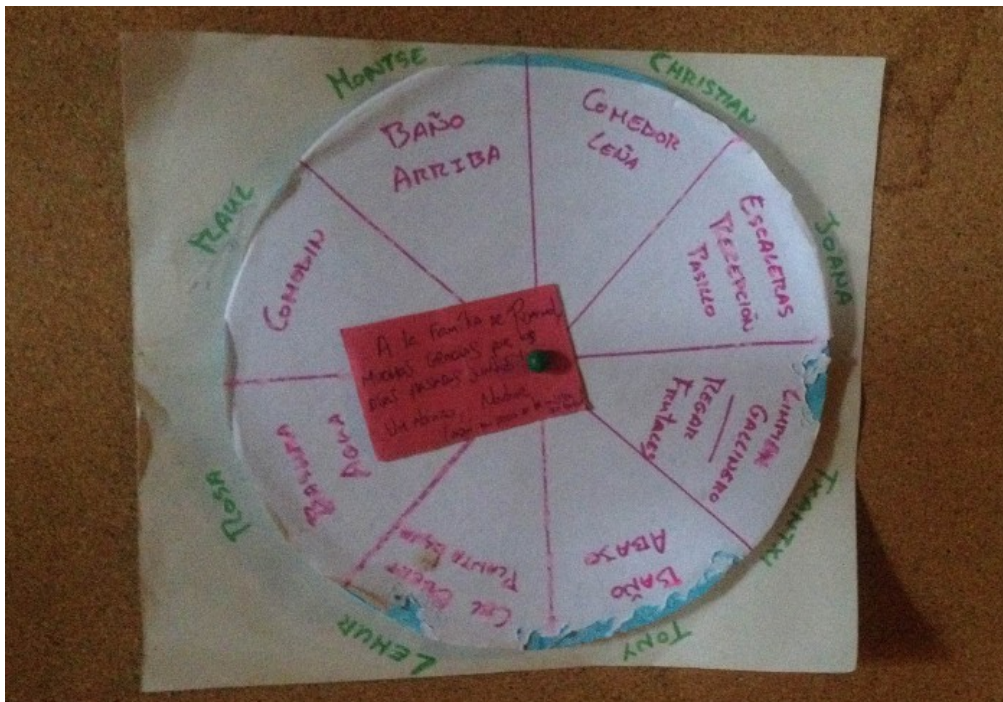 MONTSE
CHRISTIAN
JOANA
TXANTXI
TONY
LEMUR
ROSA
RAUL
BAÑO
ARRIBA
COMEDOR
LEÑA
ESCALERAS
RECEPCIÓN
PASILLO
LIMPIAR
GALLINERO
REGAR
FRUTALES
BAÑO
ABAJO
PLANTA
BASURA
AGUA
COMODIN
A la Familia de
MUCHAS GRACIAS por los
DIAS PASADOS JUNTOS
Un abrazo,